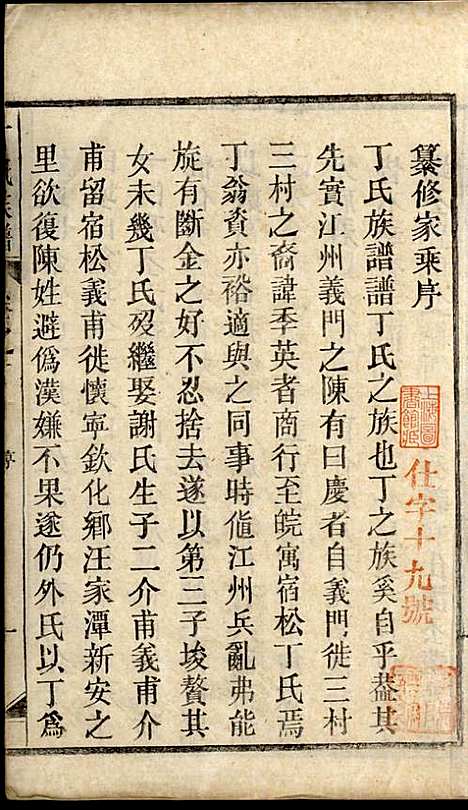 纂修家乘序
丁氏族譜譜丁氏之族也丁之族奚自乎葢其
先實江州義門之陳有曰慶者自義門徙三村
三村之裔諱季英者商行至皖寓宿松丁氏焉
丁翁賫亦裕適與之同事時值江州兵亂弗能
旋有斷金之好不忍捨去遂以第三子埈贅其
女未幾丁氏歿繼娶謝氏生子二介甫義甫介
甫留宿松義甫徙懷寧欽化鄉汪家潭新安之
里欲復陳姓避僞漢嫌不果遂仍外氏以丁爲
上海圖
書館藏
仕字十九號
氏族譜
一